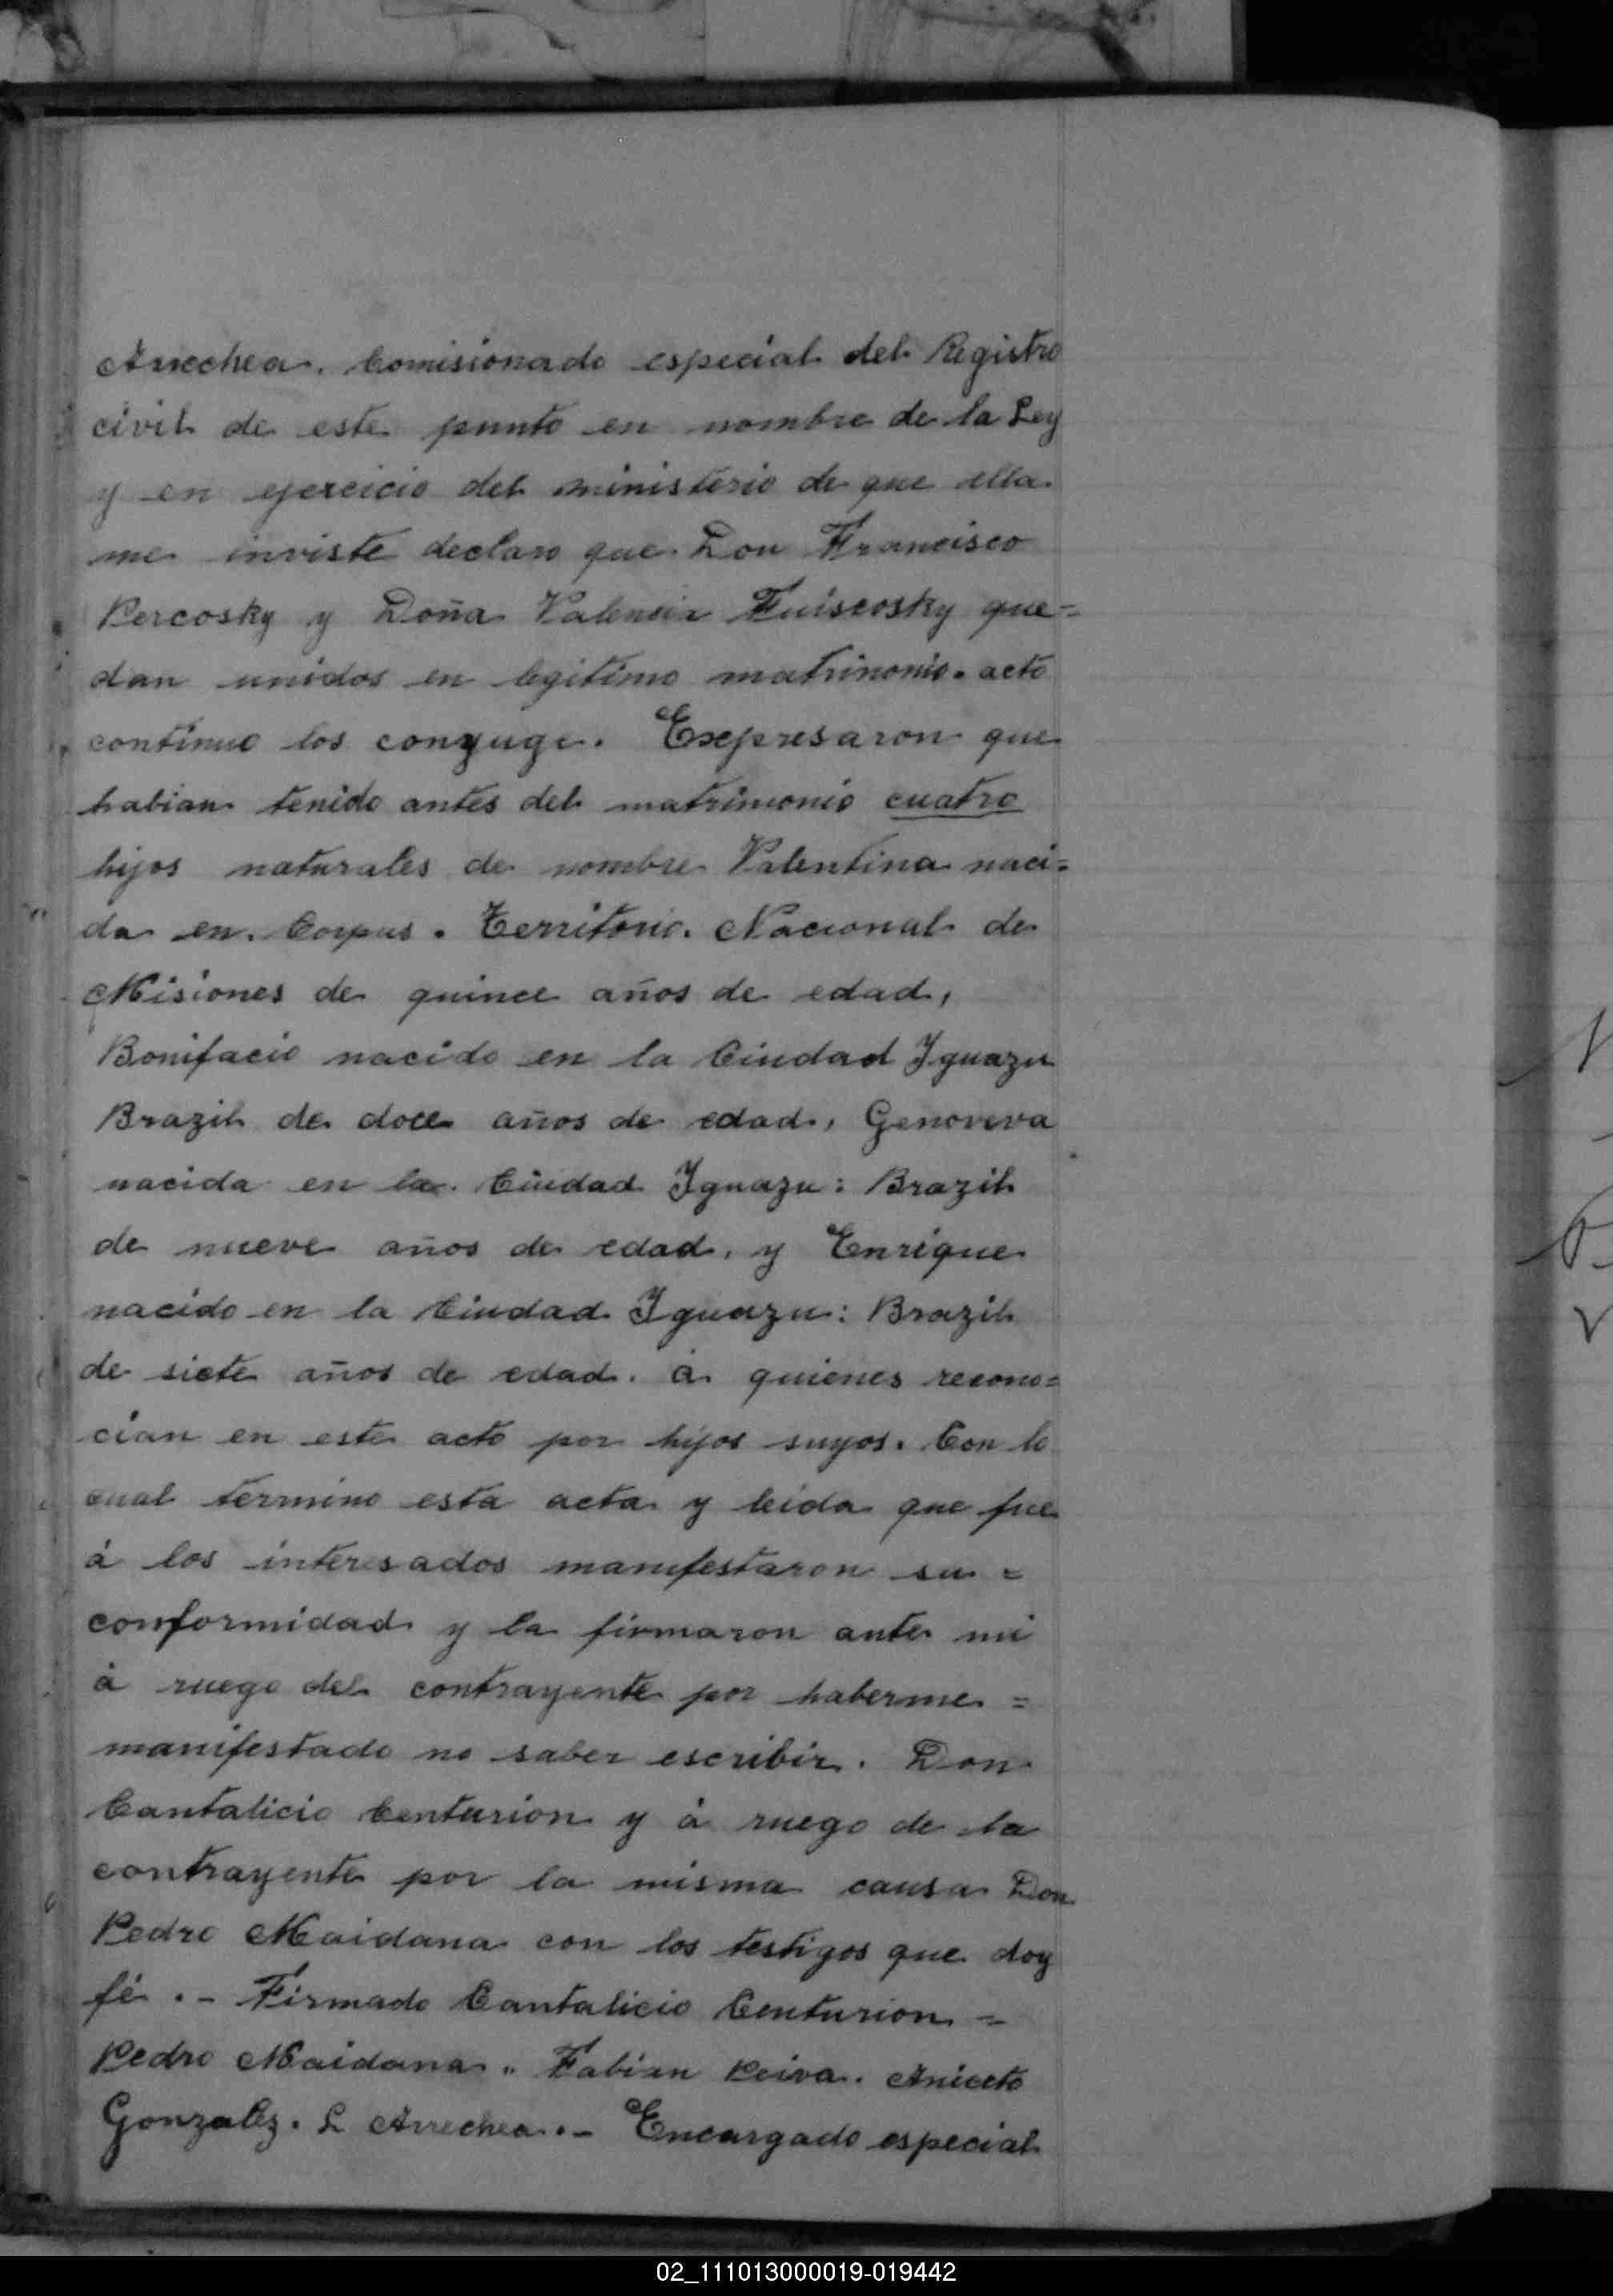 Arrechea. Comisionado especial del Registro
civil de este punto en nombre de la Ley
y en ejercicio del ministerio de que ella
me inviste declaro que Don Francisco
Percosky y Doña Valencia Fuiscosky que=
dan unidos en legitimo matrimonio. acto
continuo los conyuge. Exepresaron que
habian tenido antes del matrimonio cuatro
hijos naturales de nombre Valentina naci=
da en. Corpus. Territorio. Nacional de
Misiones de quince años de edad,
Bonifacio nacido en la Ciudad Iguazu
Brazil de doce años de edad, Genoveva
nacida en la. Ciudad Iguazu: Brazil
de nueve años de edad, y Enrique
nacido en la Ciudad Iguazu: Brazil
de siete años de edad. á quienes recono=
cian en este acto por hijos suyos. Con lo
cual termino esta acta y leida que fue
á los interesados manifestaron su =
conformidad y la firmaron ante mi
á ruego del contrayente por haberme =
manifestado no saber escribir. Don
Cantalicio Centurion y á ruego de la
contrayente por la misma causa Don
Pedro Maidana con los testigos que doy
fé. - Firmado Cantalicio Centurion =
Pedro Maidana. Fabian Leiva. Aniceto
Gonzalez. L Arrechea. - Encargado especial
02_111013000019-019442